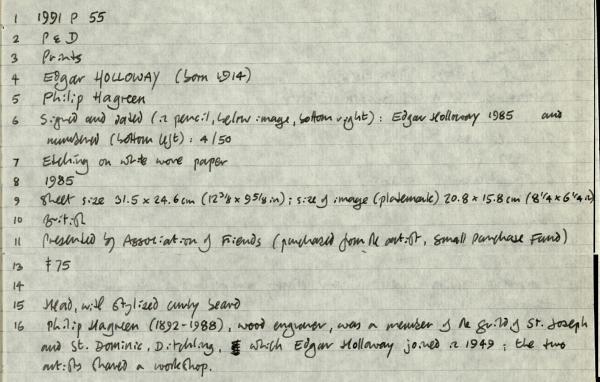 1 1991 P 55
2 P & D
3 Prints
4 Edgar HOLLOWAY (born 1914)
5 Philip Hagreen
6 Signed and dated (in pencil, below image, bottom right): Edgar Holloway 1985 and
numbered (bottom left): 4/50
7 Etching on white wove paper
8 1985
9 Sheet size 31.5 x 24.6 cm (12 3/8 x 9 5/8 in); size of image (platemark) 20.8 x 15.8 cm (8 1/4 x 6 1/4 in)
10 British
11 Presented by Association of Friends (purchased from the artist, Small Purchase Fund)
13 £75
14
15 Head, with stylized curly beard
16 Philip Hagreen (1892-1988), wood engraver, was a member of the guild of St. Joseph
and St. Dominic, Ditchling, which Edgar Holloway joined in 1949; the two
artists shared a workshop.